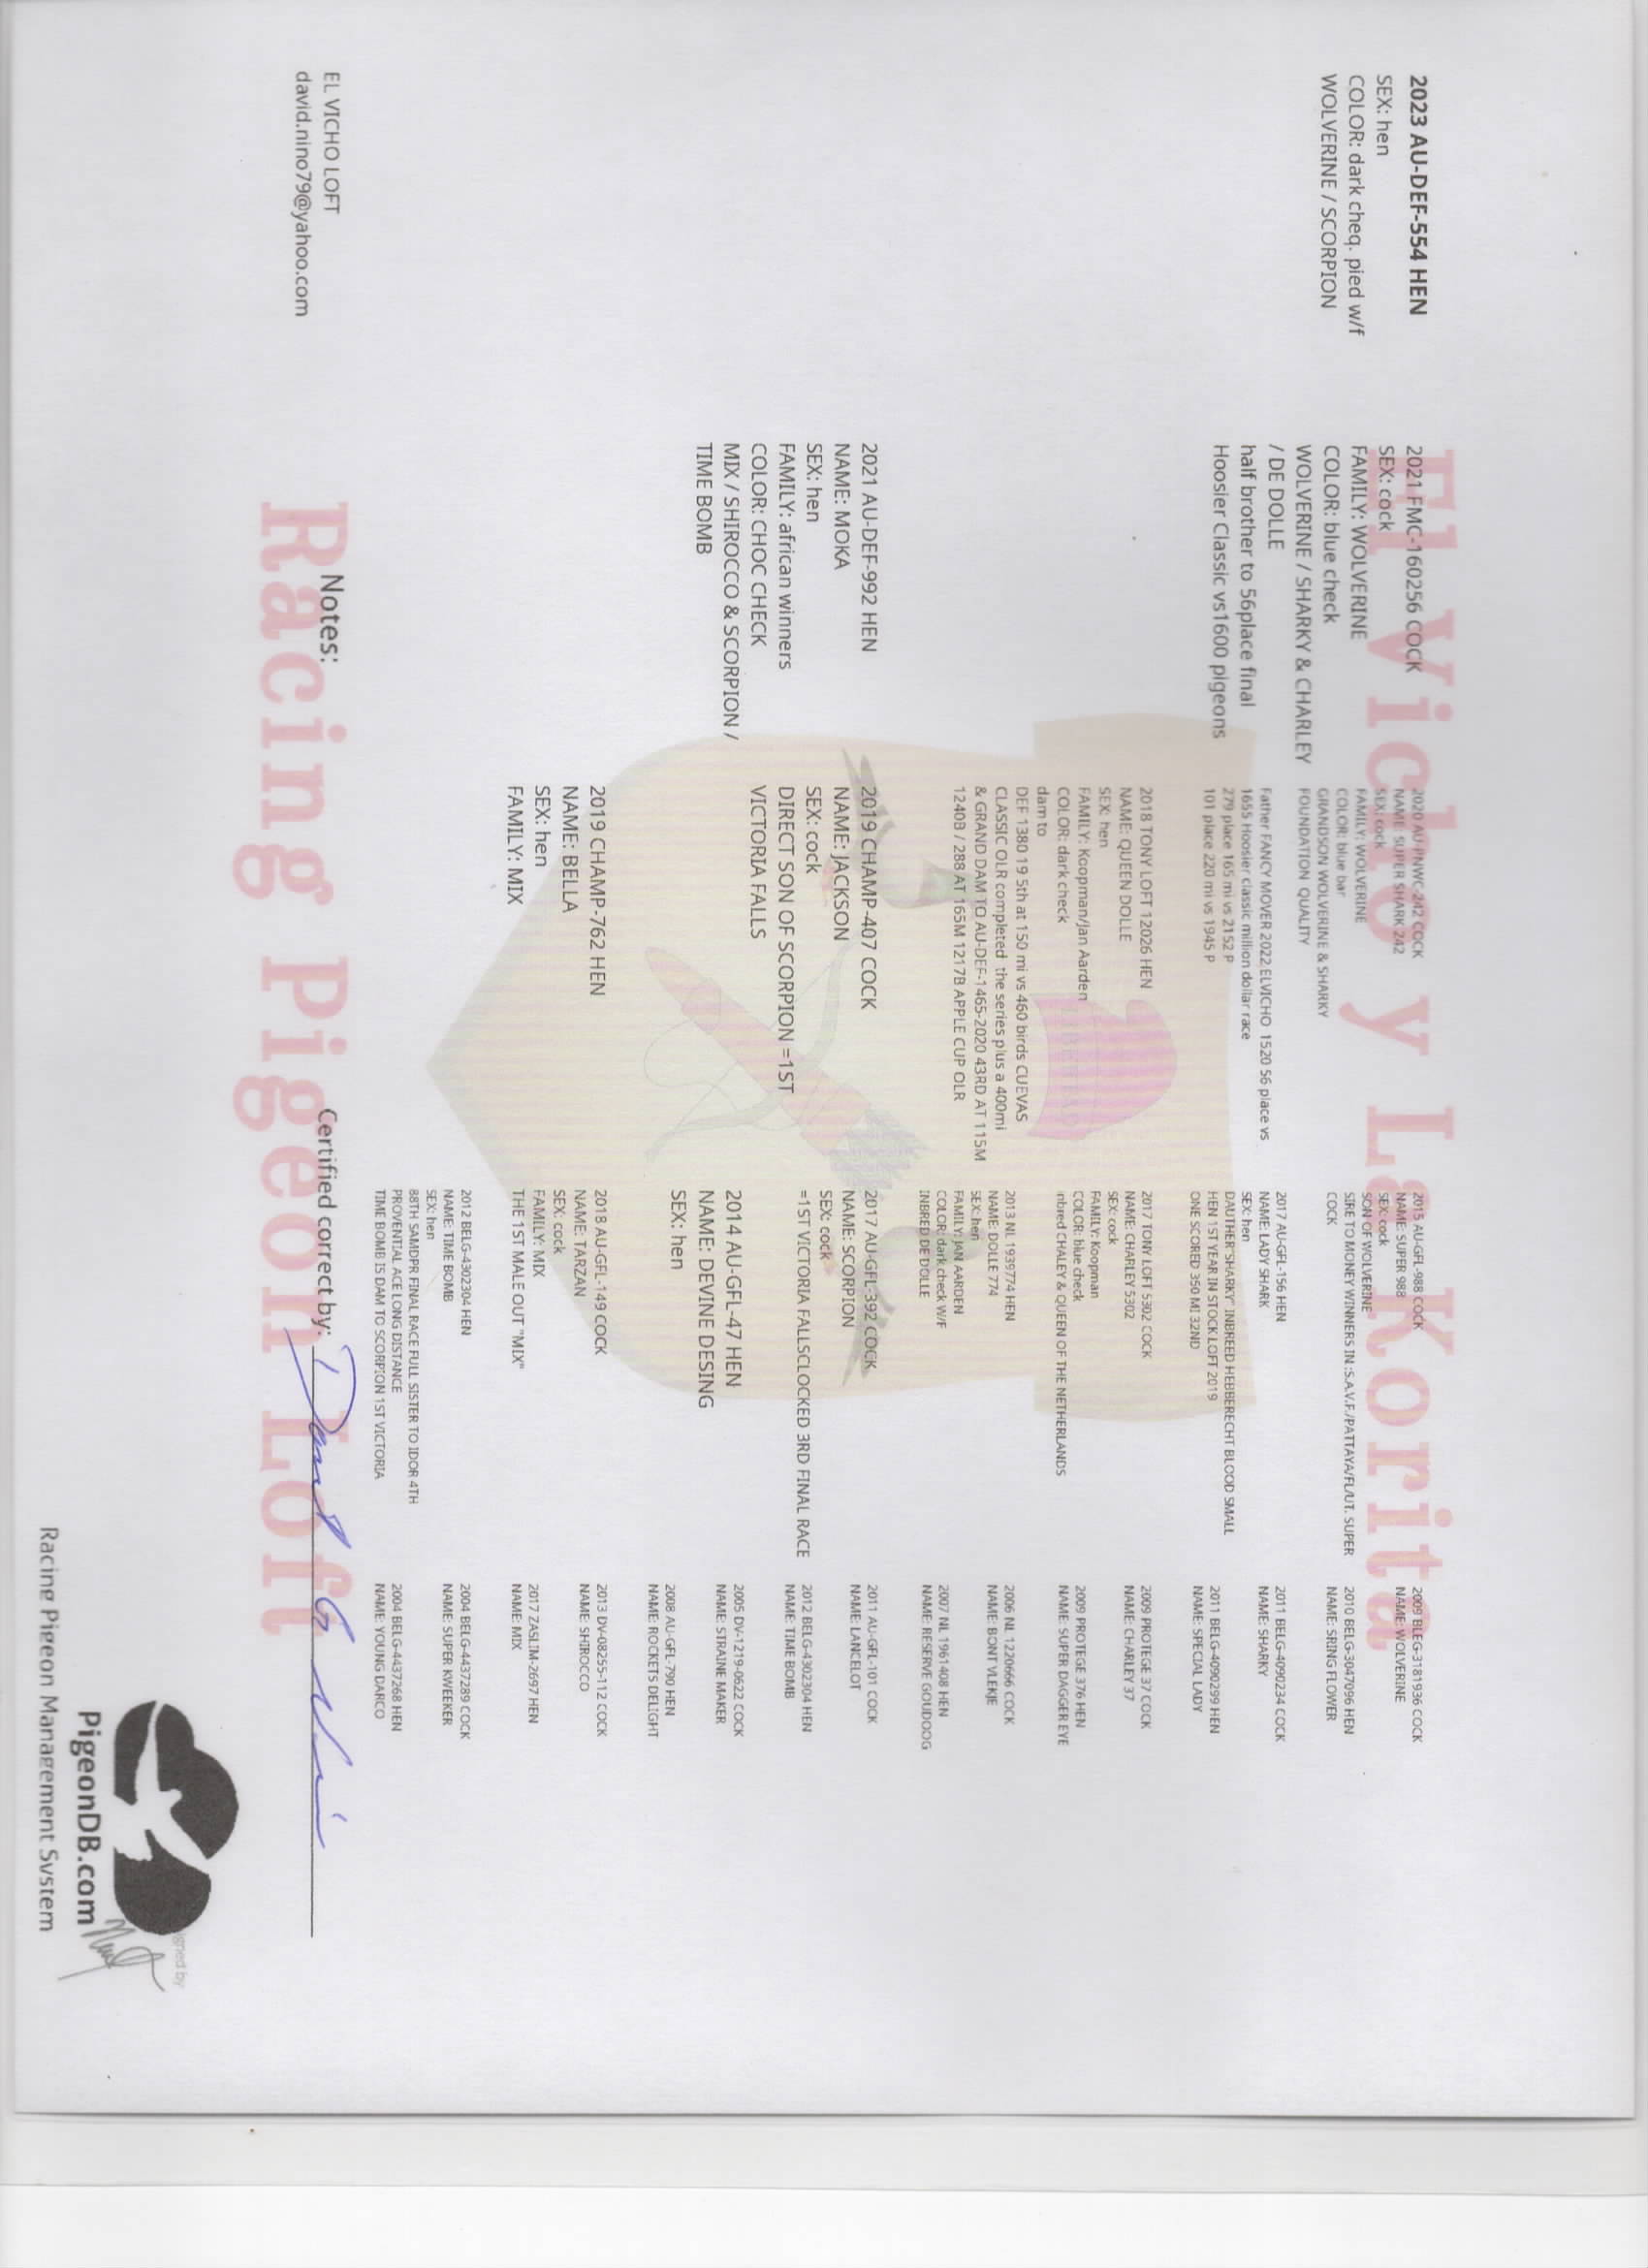 El Vicho y La Korita
2023 AU-DEF-554 HEN
SEX: hen
COLOR: dark cheq. pied w/f
WOLVERINE / SCORPION
2021 FMC-160256 COCK
SEX: cock
FAMILY: WOLVERINE
COLOR: blue check
WOLVERINE / SHARKY & CHARLEY
/ DE DOLLE
half brother to 56place final
Hoosier Classic vs1600 pigeons
2021 AU-DEF-992 HEN
NAME: MOKA
SEX: hen
FAMILY: african winners
COLOR: CHOC CHECK
MIX / SHIROCCO & SCORPION /
TIME BOMB
2020 AU-PNWC-242 COCK
NAME: SUPER SHARK 242
SEX: cock
FAMILY: WOLVERINE
COLOR: blue bar
GRANDSON WOLVERINE & SHARKY
FOUNDATION QUALITY
Father FANCY MOVER 2022 ELVICHO 1520 56 place vs
1655 Hoosier classic million dollar race
279 place 165 mi vs 2152 P
101 place 220 mi vs 1945 P
2018 TONY LOFT 12026 HEN
NAME: QUEEN DOLLE
SEX: hen
FAMILY: Koopman/Jan Aarden
COLOR: dark check
dam to
DEF 1380 19 5th at 150 mi vs 460 birds CUEVAS
CLASSIC OLR completed the series plus a 400mi
& GRAND DAM TO AU-DEF-1465-2020 43RD AT 115M
1240B / 288 AT 165M 1217B APPLE CUP OLR
2019 CHAMP-407 COCK
NAME: JACKSON
SEX: cock
DIRECT SON OF SCORPION =1ST
VICTORIA FALLS
2019 CHAMP-762 HEN
NAME: BELLA
SEX: hen
FAMILY: MIX
2015 AU-GFL-988 COCK
NAME: SUPER 988
SEX: cock
SON OF WOLVERINE
SIRE TO MONEY WINNERS IN :S.A.V.F./PATTAYA/FL/UT. SUPER
COCK
2017 AU-GFL-156 HEN
NAME: LADY SHARK
SEX: hen
DAUTHER"SHARKY" INBREED HEBBERECHT BLOOD SMALL
HEN 1ST YEAR IN STOCK LOFT 2019
ONE SCORED 350 MI 32ND
2017 TONY LOFT 5302 COCK
NAME: CHARLEY 5302
SEX: cock
FAMILY: Koopman
COLOR: blue check
inbred CHALEY & QUEEN OF THE NETHERLANDS
2013 NL 1939774 HEN
NAME: DOLLE 774
SEX: hen
FAMILY: JAN AARDEN
COLOR: dark check W/F
INBRED DE DOLLE
2017 AU-GFL-392 COCK
NAME: SCORPION
SEX: cock
=1ST VICTORIA FALLSCLOCKED 3RD FINAL RACE
2014 AU-GFL-47 HEN
NAME: DEVINE DESING
SEX: hen
2018 AU-GFL-149 COCK
NAME: TARZAN
SEX: cock
FAMILY: MIX
THE 1ST MALE OUT "MIX"
2012 BELG-4302304 HEN
NAME: TIME BOMB
SEX: hen
88TH SAMDPR FINAL RACE FULL SISTER TO IDOR 4TH
PROVENTIAL ACE LONG DISTANCE
TIME BOMB IS DAM TO SCORPION 1ST VICTORIA
2009 BLEG-3181936 COCK
NAME: WOLVERINE
2010 BELG-3047096 HEN
NAME: SRING FLOWER
2011 BELG-4090234 COCK
NAME: SHARKY
2011 BELG-4090299 HEN
NAME: SPECIAL LADY
2009 PROTEGE 37 COCK
NAME: CHARLEY 37
2009 PROTEGE 376 HEN
NAME: SUPER DAGGER EYE
2006 NL 1220666 COCK
NAME: BONT VLEKJE
2007 NL 1961408 HEN
NAME: RESERVE GOUDOOG
2011 AU-GFL-101 COCK
NAME: LANCELOT
2012 BELG-4302304 HEN
NAME: TIME BOMB
2005 DV-1219-0622 COCK
NAME: STRAINE MAKER
2008 AU-GFL-790 HEN
NAME: ROCKETS DELIGHT
2013 DV-08255-112 COCK
NAME: SHIROCCO
2017 ZASLIM-2697 HEN
NAME: MIX
2004 BELG-4437289 COCK
NAME: SUPER KWEEKER
2004 BELG-4437268 HEN
NAME: YOUNG DARCO
EL VICHO LOFT
david.nino79@yahoo.com
Notes:
Certified correct by:
Racing Pigeon Loft
gned by
PigeonDB.com
Racing Pigeon Management System